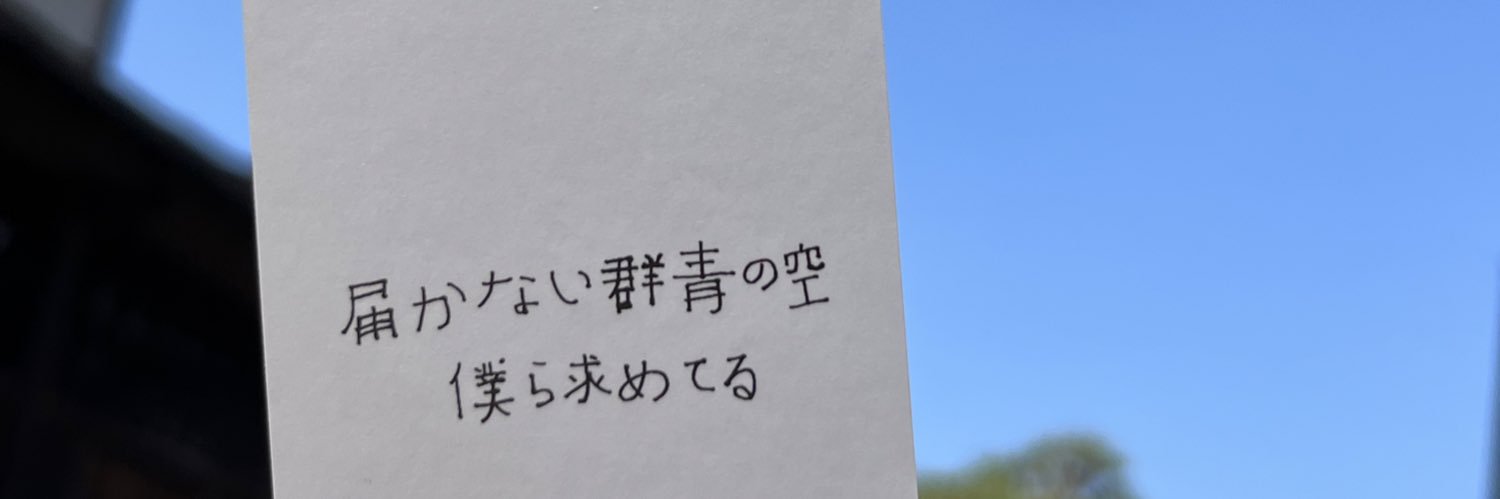 届かない群青の空
僕ら求めてる